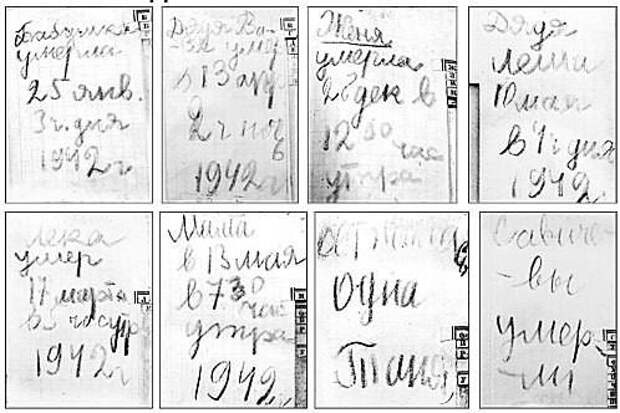 Бабушка
умерла
25 янв.
3 ч. дня
1942 г
Дядя Ва-
-ся умер
в 13 апр
2 ч ноч
1942 г
Женя
умерла
28 дек в
12 00 час
утра
Дядя
Леша
10 мая
в 4 ч дня
1942
Лека
умер
17 марта
в 5 час утр
1942 г
Мама
в 13 мая
в 7 30
час
утра
1942
Осталась
одна
Таня
Савиче-
-вы
умер-
-ли